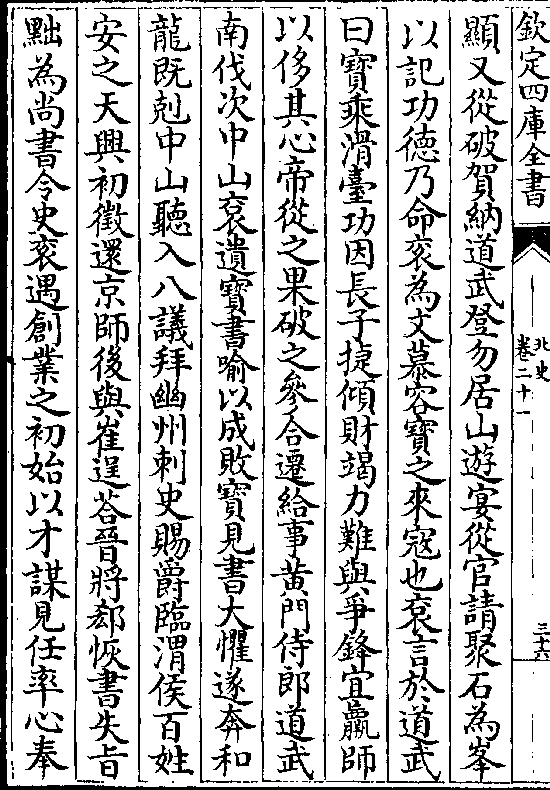 欽定四庫全書
北史
卷二十一
三十六
顯又從破賀納道武登勿居山遊宴從官請聚石為峯
以記功德乃命衮為文慕容寶之來寇也衮言於道武
曰寶乘滑臺功因長子捷傾財竭力難與爭鋒宜羸師
以侈其心帝從之果破之參合遷給事黄門侍郎道武
南伐次中山衮遺寶書喻以成敗寶見書大懼遂奔和
龍既剋中山聽入八議拜幽州刺史賜爵臨渭侯百姓
安之天興初徵還京師後與崔逞荅晉將郄恢書失旨
黜為尚書令史衮遇創業之初始以才謀見任率心奉